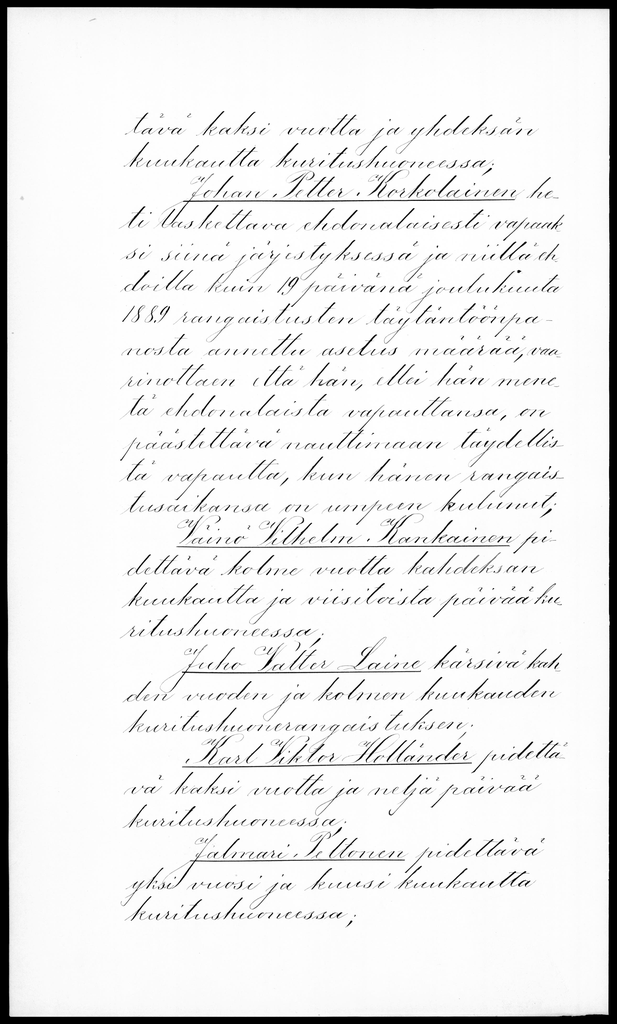 tävä kaksi vuotta ja yhdeksän
kuukautta kuritushuoneessa;
Johan Petter Korkolainen he-
ti laskettava ehdonalaisesti vapaak-
si siinä järjestyksessä ja niillä eh-
doilla kuin 19 päivänä joulukuuta
1889 rangaistusten täytäntöönpa-
nosta annettu asetus määrää, vaa-
rinottaen että hän, ellei hän mene-
tä ehdonalaista vapauttansa, on
päästettävä nauttimaan täydellis-
tä vapautta, kun hänen rangais-
tusaikansa on umpeen kulunut;
Väinö Vilhelm Kankainen pi-
dettävä kolme vuotta kahdeksan
kuukautta ja viisitoista päivää ku-
ritushuoneessa;
Juho Valter Laine kärsivä kah-
den vuoden ja kolmen kuukauden
kuritushuonerangaistuksen;
Karl Viktor Holländer pidettä-
vä kaksi vuotta ja neljä päivää
kuritushuoneessa;
Jalmari Peltonen pidettävä
yksi vuosi ja kuusi kuukautta
kuritushuoneessa;